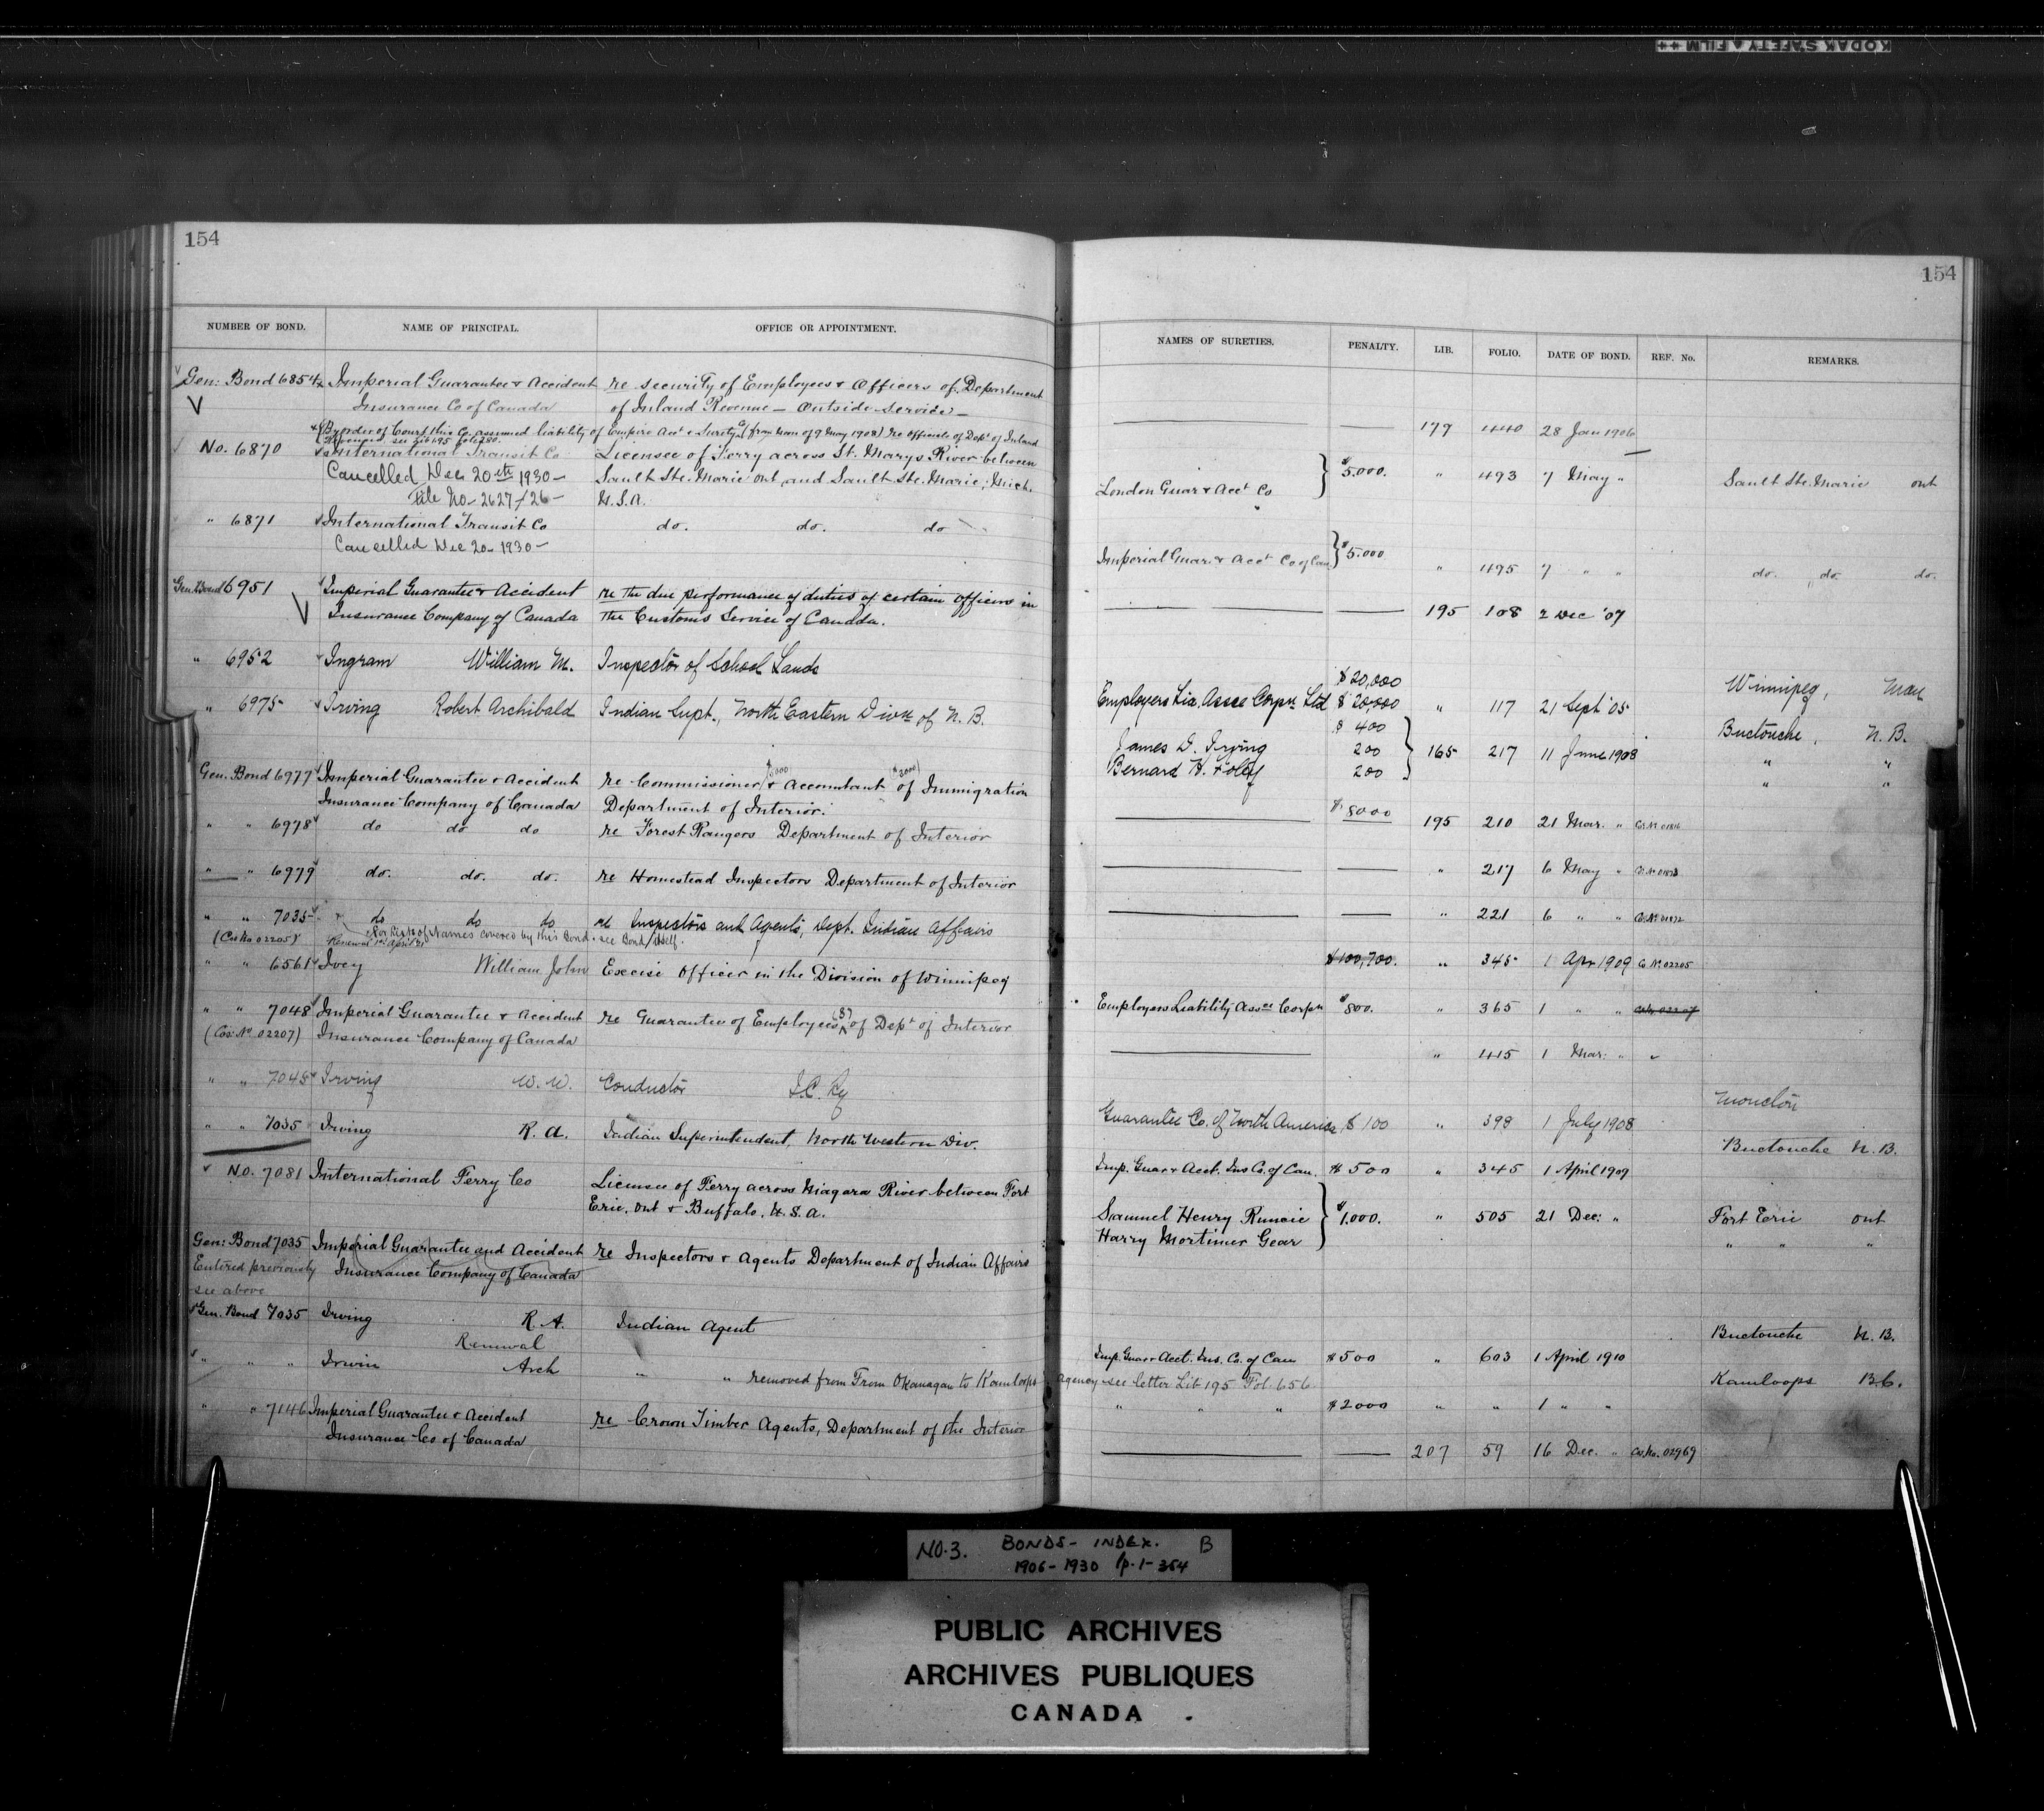 KODAK SAFETY FILM ++
154
NUMBER OF BOND. NAME OF PRINCIPAL. OFFICE OR APPOINTMENT.
Gen: Bond 6854 Imperial Guarantee & Accident re security of Employees & Officers of Department
Insurance Co of Canada of Inland Revenue — Outside Service —
(By order of Court this Co assumed liability of Empire Acct & Surety Co (from noon of 9 May 1908) re Officials of Dept of Inland
Revenue, see Lib 195 folo 280.
No. 6870 International Transit Co Licensee of Ferry across St. Marys River between
Cancelled Dec 20th 1930 — Sault Ste. Marie Ont. and Sault Ste. Marie, Mich.
File No- 2627/26 — U.S.A.
" 6871 International Transit Co do. do. do
Cancelled Dec 20- 1930 —
Gen. Bond 6951 Imperial Guarantee & Accident re the due performance of duties of certain officers in
Insurance Company of Canada the Customs Service of Canada.
" 6952 Ingram William M. Inspector of School Lands
" 6975 Irving Robert Archibald Indian Supt., North Eastern Divn of N.B.
Gen. Bond 6977 Imperial Guarantee & Accident re Commissioner & Accountant ($3000) of Immigration
Insurance Company of Canada Department of Interior.
" " 6978 do do do re Forest Rangers Department of Interior
" " 6979 do. do. do. re Homestead Inspectors Department of Interior
" " 7035 do do do re Inspectors and Agents, Dept. Indian Affairs
(Cos No 02205) For list of Names covered by this Bond - see Bond itself.
Renewed 1st April
" " 6561 Ivey William John Excise Officer in the Division of Winnipeg
" " 7048 Imperial Guarantee & Accident re Guarantee of Employees (37) of Dept of Interior
(Cos: No 02207) Insurance Company of Canada
" " 7045 Irving W. W. Conductor I.C. Ry
" " 7035 Irving R. A. Indian Superintendent, North Western Div.
No. 7081 International Ferry Co Licensee of Ferry across Niagara River between Fort
Erie, Ont & Buffalo, U.S.A.
Gen: Bond 7035 Imperial Guarantee and Accident re Inspectors & Agents Department of Indian Affairs
Entered previously Insurance Company of Canada
see above
Gen. Bond 7035 Irving R. A. Indian Agent
Renewal
" " " Irwin Arch " " removed from From Okanagan to Kamloops Agency see letter Lib 195 Fol. 656
" " 7146 Imperial Guarantee & Accident re Crown Timber Agents, Department of the Interior
Insurance Co of Canada
154
NAMES OF SURETIES. PENALTY. LIB. FOLIO. DATE OF BOND. REF. No. REMARKS.
179 440 28 Jan 1906
London Guar & Acct Co } $5.000. " 493 7 May " Sault Ste. Marie Ont
"
Imperial Guar. & Acct Co of Can } $5.000 " 495 7 " " do. do. do.
195 108 2 Dec '07
$20,000
Employers Lia. Assce Corpn Ltd $20,000 " 117 21 Sept '05 Winnipeg, Man
$ 400 Buctouche, N.B.
James D. Irving 200 } 165 217 11 June 1908 " "
Bernard H. Foley 200 " "
$8000 195 210 21 Mar. "
" 217 6 May "
" 221 6 " "
$100,700. " 345 1 Apr 1909 Co No. 02205
Employers Liability Assce Corpn $800. " 365 1 " "
" 415 1 Mar: " "
Moncton
Guarantee Co. of North America $100 " 398 1 July 1908
Buctouche N.B.
Imp. Guar & Acct. Ins Co. of Can. $500 " 345 1 April 1909
Samuel Henry Runcie } $1.000. " 505 21 Dec: " Fort Erie Ont
Harry Mortimer Gear " " "
Buctouche N.B.
Imp. Guar & Acct. Ins. Co. of Can $500 " 603 1 April 1910
Kamloops B.C.
" " " $2000 " " 1 " "
207 59 16 Dec. " Co. No. 02969
NO. 3. BONDS - INDEX. B
1906-1930 (p. 1-354
PUBLIC ARCHIVES
ARCHIVES PUBLIQUES
CANADA